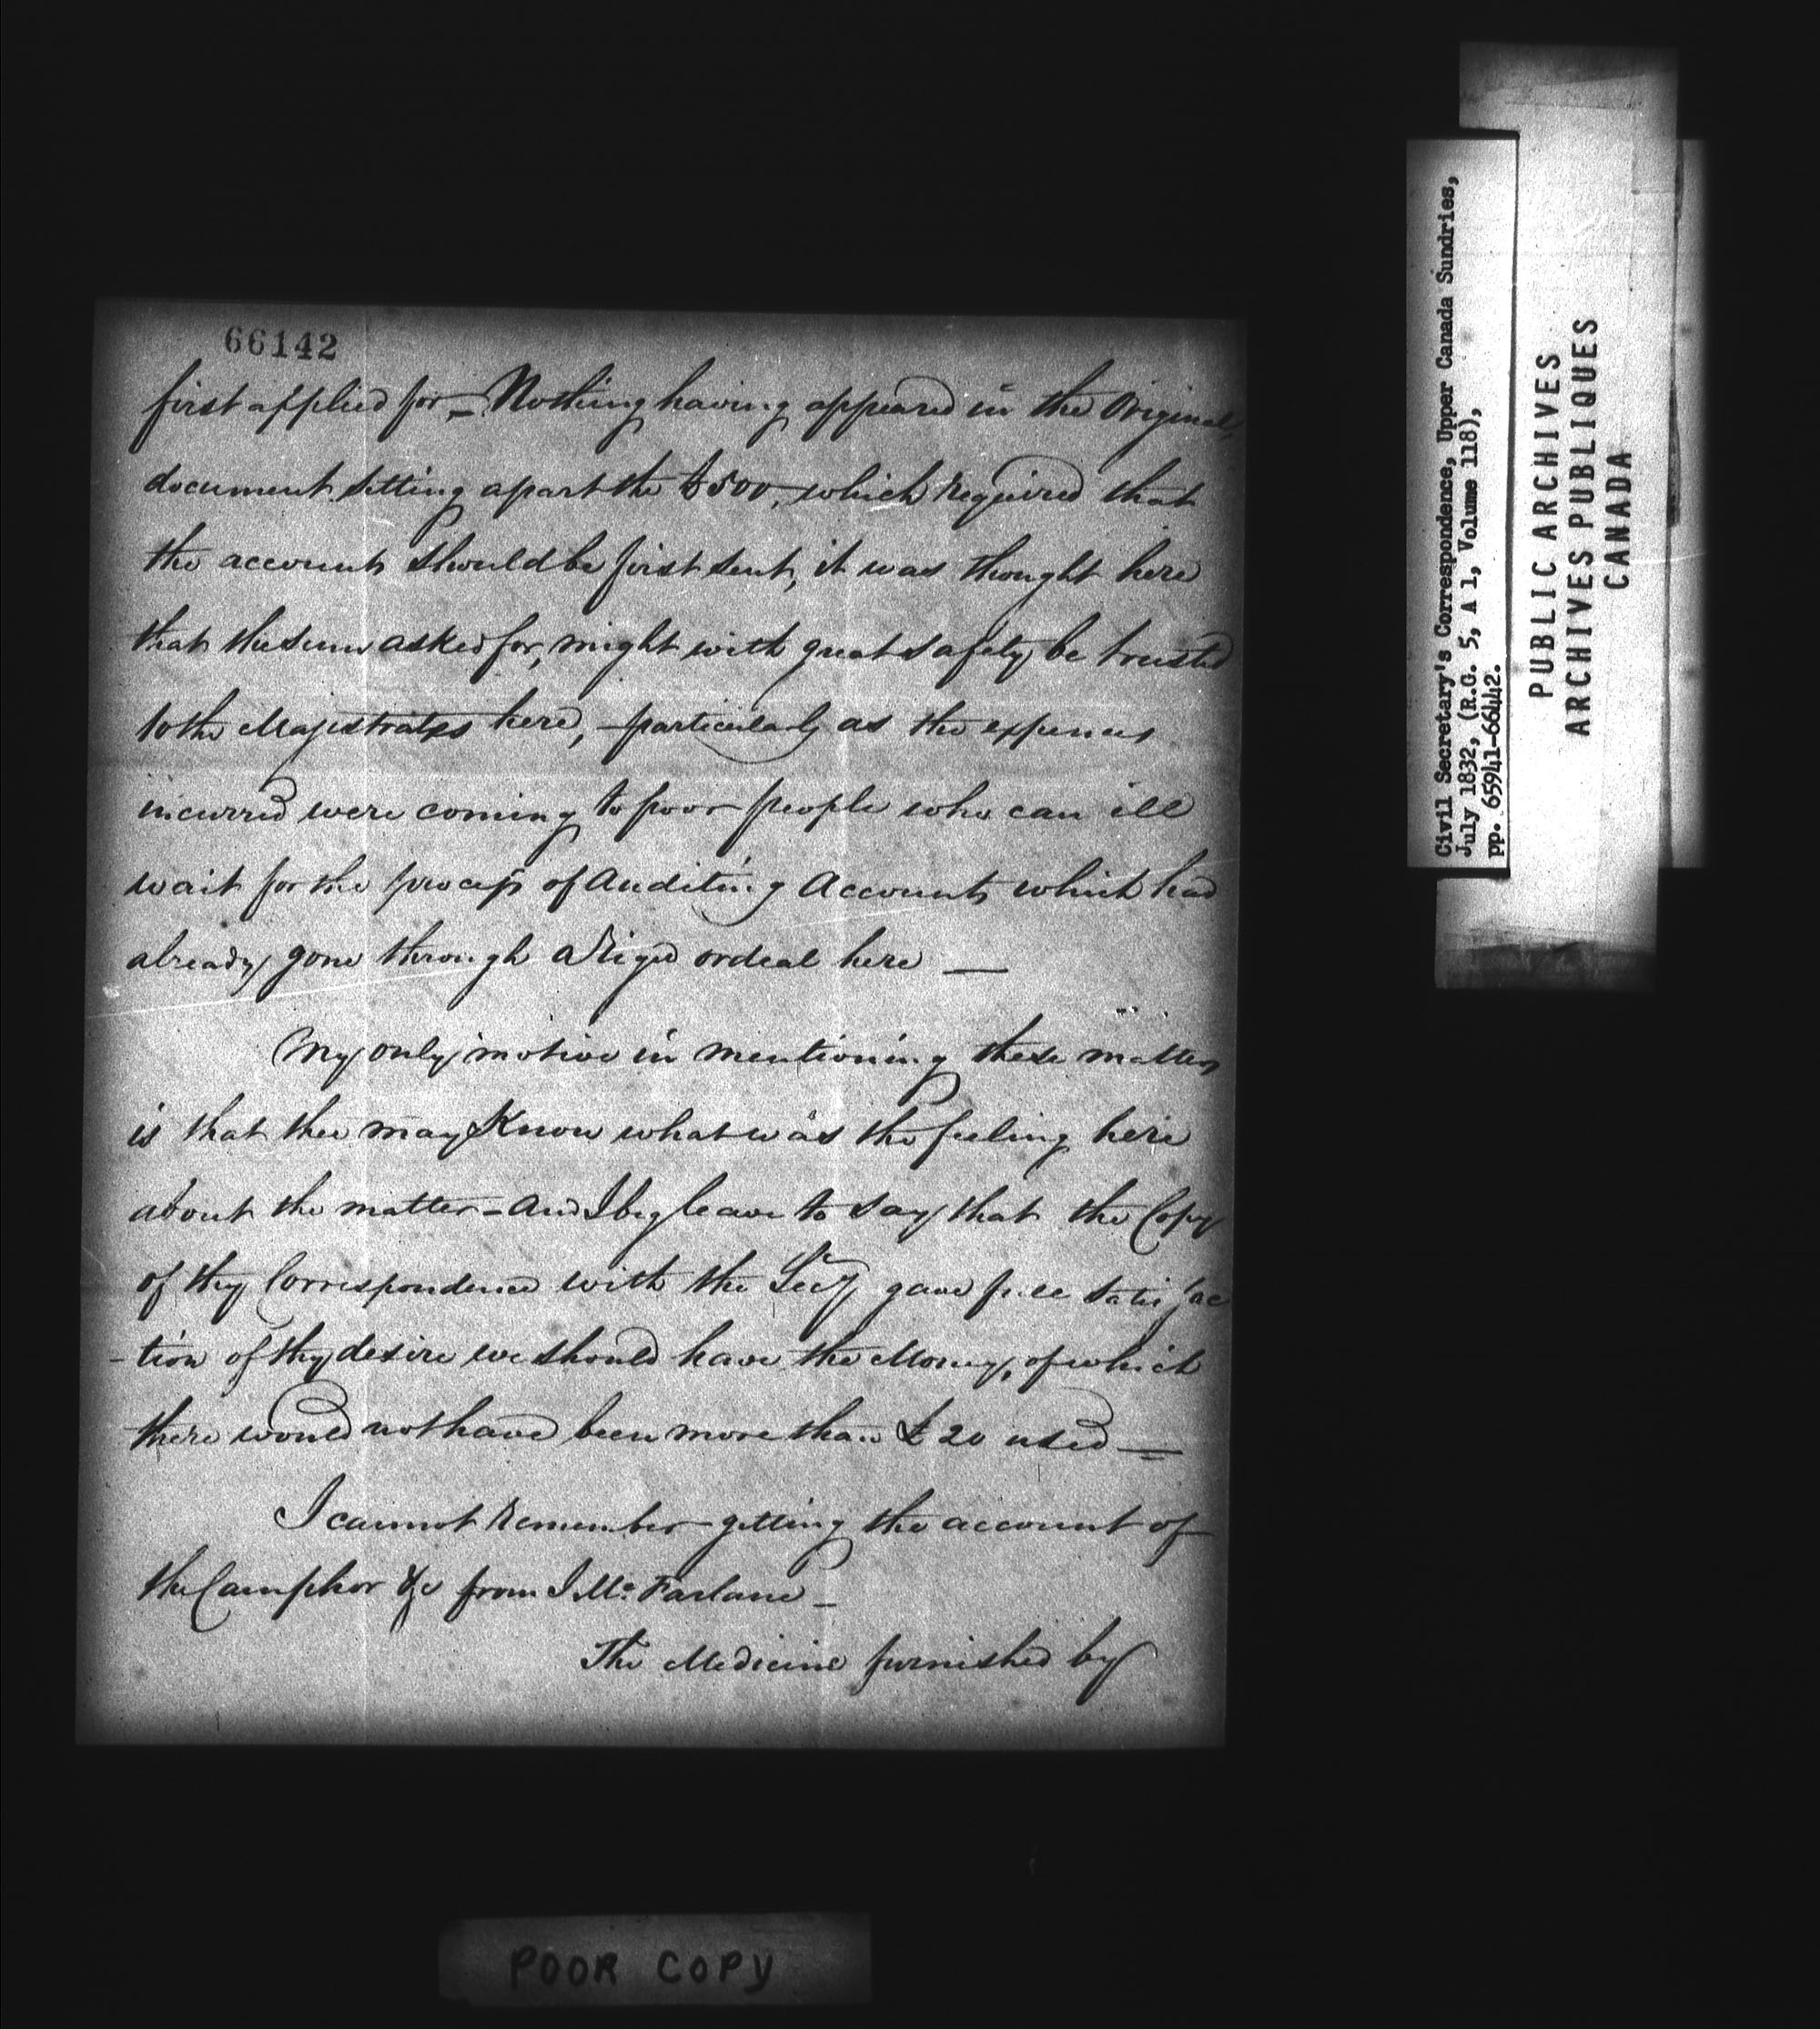 66142
first applied for – Nothing having appeared in the Original
document setting apart the £500, which required that
the accounts should be first sent, it was thought here
that the sum asked for, might with great safety be trusted
to the Magistrates here, – particularly as the expences
incurred were coming to poor people who can ill
wait for the process of Auditing Accounts which had
already gone through a Rigid ordeal here —
My only motive in mentioning these matters
is that thee may Know what was the feeling here
about the matter – and I beg leave to say that the Copy
of thy Correspondence with the Secy gave full satisfac
-tion of thy desire we should have the Money, of which
there would not have been more than £20 used —
I cannot Remember getting the account of
the Camphor &c from J McFarlane –
The Medicine furnished by
Civil Secretary's Correspondence, Upper Canada Sundries,
July 1832, (R.G. 5, A 1, Volume 118),
pp. 65941-66442.
PUBLIC ARCHIVES
ARCHIVES PUBLIQUES
CANADA
POOR COPY